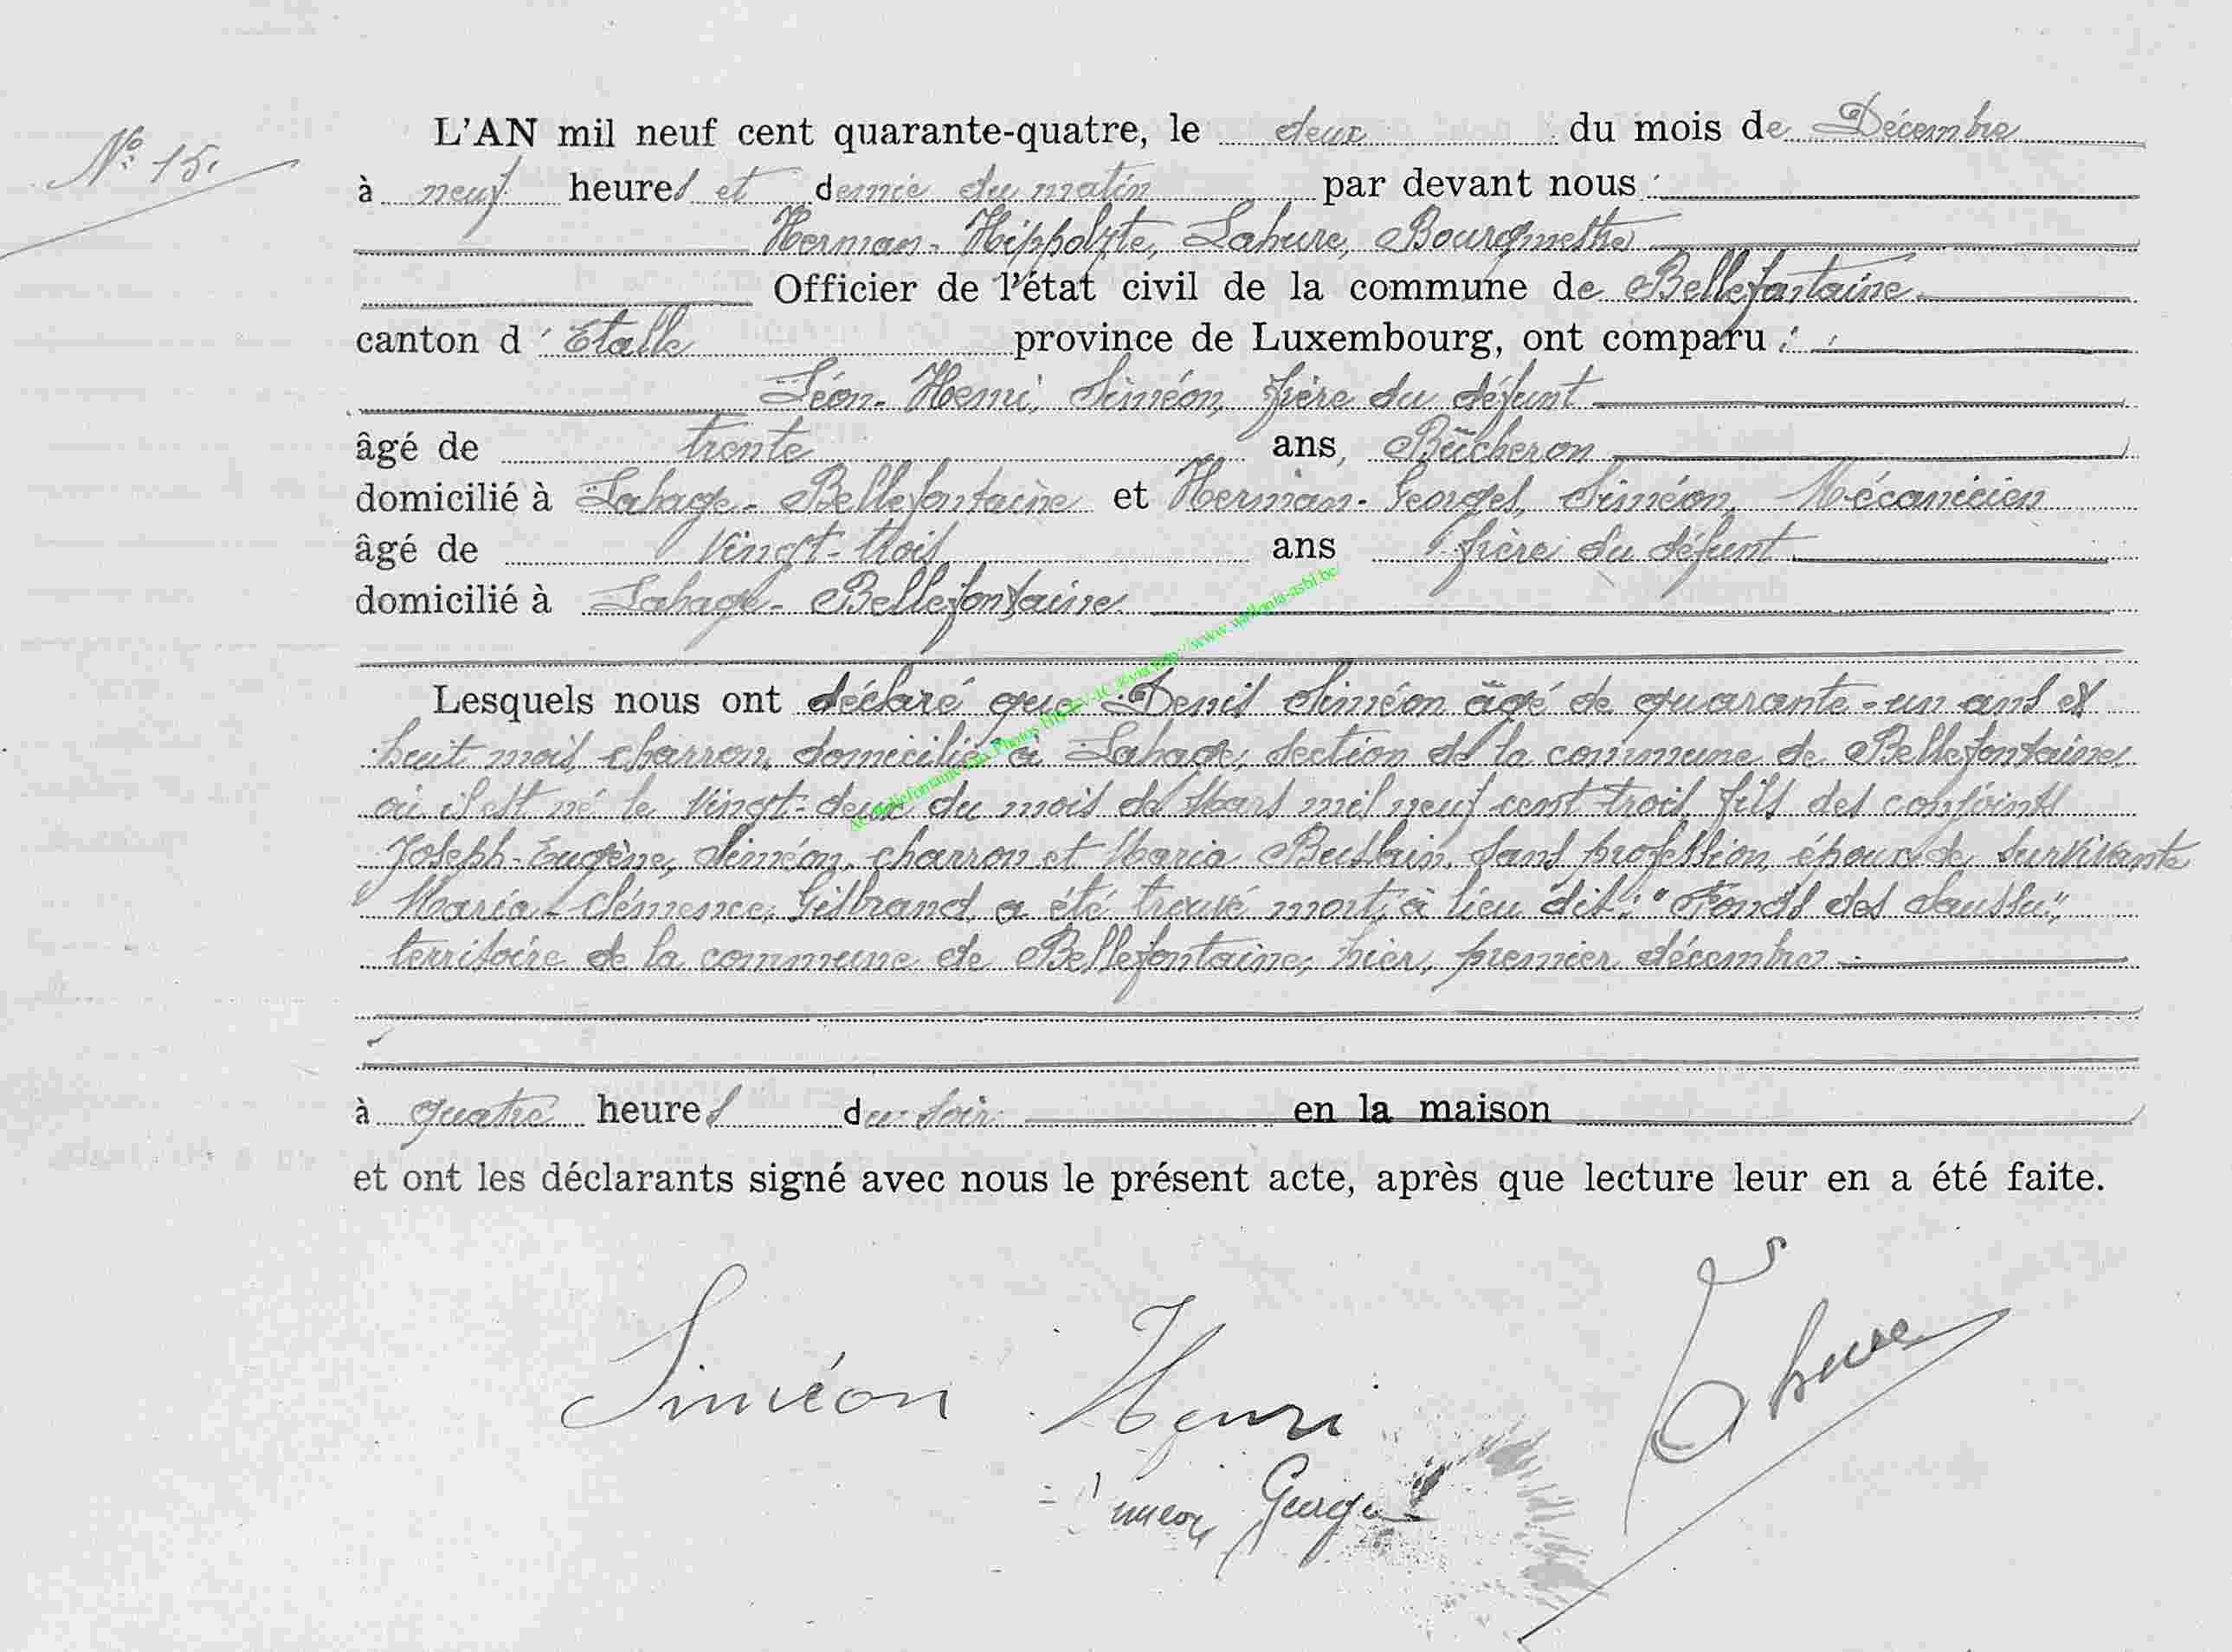 N° 15.
L'AN mil neuf cent quarante-quatre, le deux du mois de Décembre
à neuf heures et demie du matin par devant nous :
Herman-Hippolyte, Lahure, Bourgmestre
Officier de l'état civil de la commune de Bellefontaine
canton d' Etalle province de Luxembourg, ont comparu :
Léon-Henri, Siméon, frère du défunt
âgé de trente ans, Bûcheron
domicilié à Lahage-Bellefontaine et Herman-Georges, Siméon, Mécanicien
âgé de Vingt-trois ans frère du défunt
domicilié à Lahage-Bellefontaine
Lesquels nous ont déclaré que Denis Siméon âgé de quarante-un ans et
huit mois, charron, domicilié à Lahage, section de la commune de Bellefontaine,
où il est né le Vingt-deux du mois de Mars mil neuf cent trois, fils des conjoints
Joseph-Eugène, Siméon, charron et Maria sans profession, époux de survivante
Maria-Clémence, Gilbrand, a été trouvé mort, à lieu dit: "Fonds des Saussu",
territoire de la commune de Bellefontaine, hier, premier décembre
à quatre heures du soir en la maison
et ont les déclarants signé avec nous le présent acte, après que lecture leur en a été faite.
Siméon Henri
Siméon Georges
Lahure